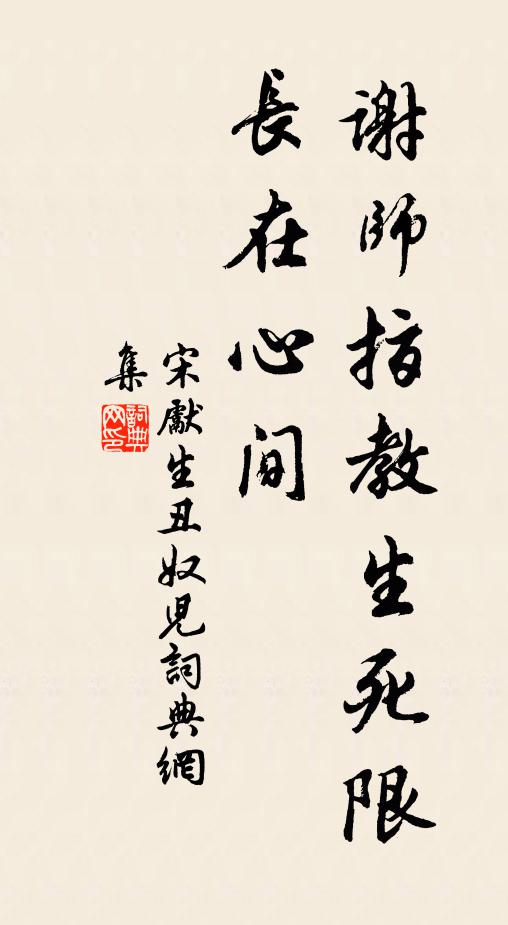 謝師指教生死限
長在心間
宋獻生丑奴兒詞典網
集
詞典網印